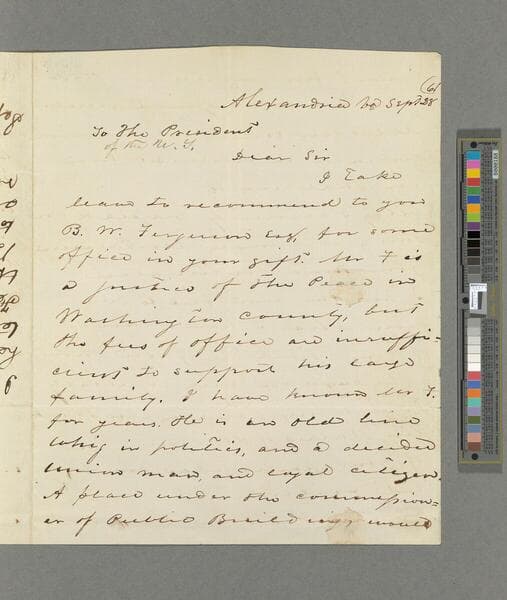 (6)
Alexandria Va Sept 28
To The President
of the U. S.
Dear Sir
I Take
leave to recommend to you
B. W. Ferguson Esq, for some
office in your gift. Mr F is
a justice of the Peace in
Washington County, but
the fees of office are insuffi-
cient to support his large
family. I have known Mr F.
for years. He is an old line
Whig in politics, and a decided
union man, and loyal citizen.
A place under the commission-
er of Public Buildings would